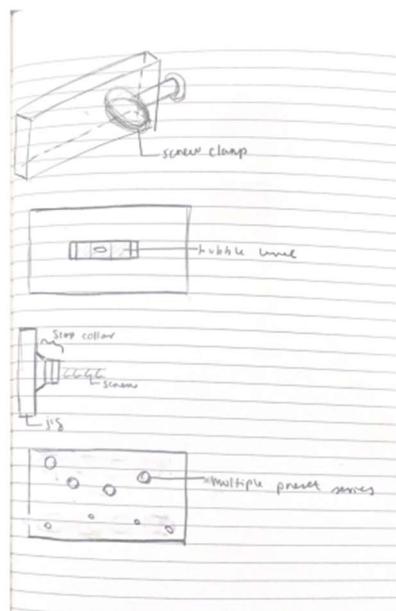 screw clamp
bubble level
stop collar
screw
jig
multiple preset series